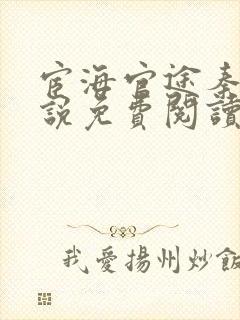 宦海官途秦
說免費閱讀
我愛揚州炒飯